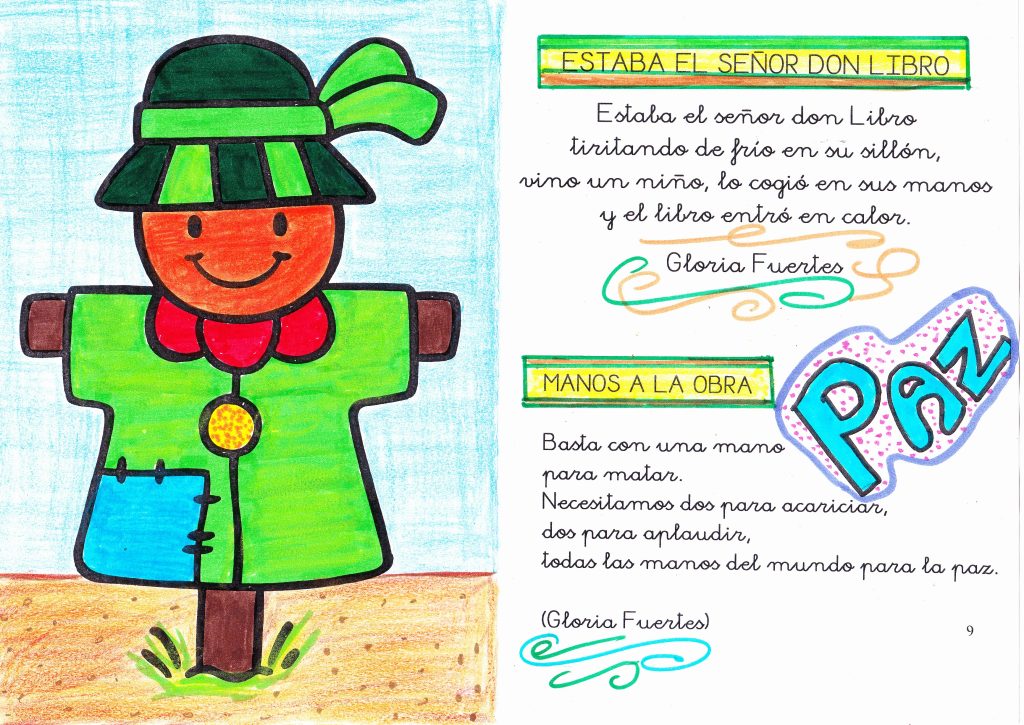 ESTABA EL SEÑOR DON LIBRO
Estaba el señor don Libro
tiritando de frío en su sillón,
vino un niño, lo cogió en sus manos
y el libro entró en calor.
Gloria Fuertes
Paz
MANOS A LA OBRA
Basta con una mano
para matar.
Necesitamos dos para acariciar,
dos para aplaudir,
todas las manos del mundo para la paz.
(Gloria Fuertes)
9